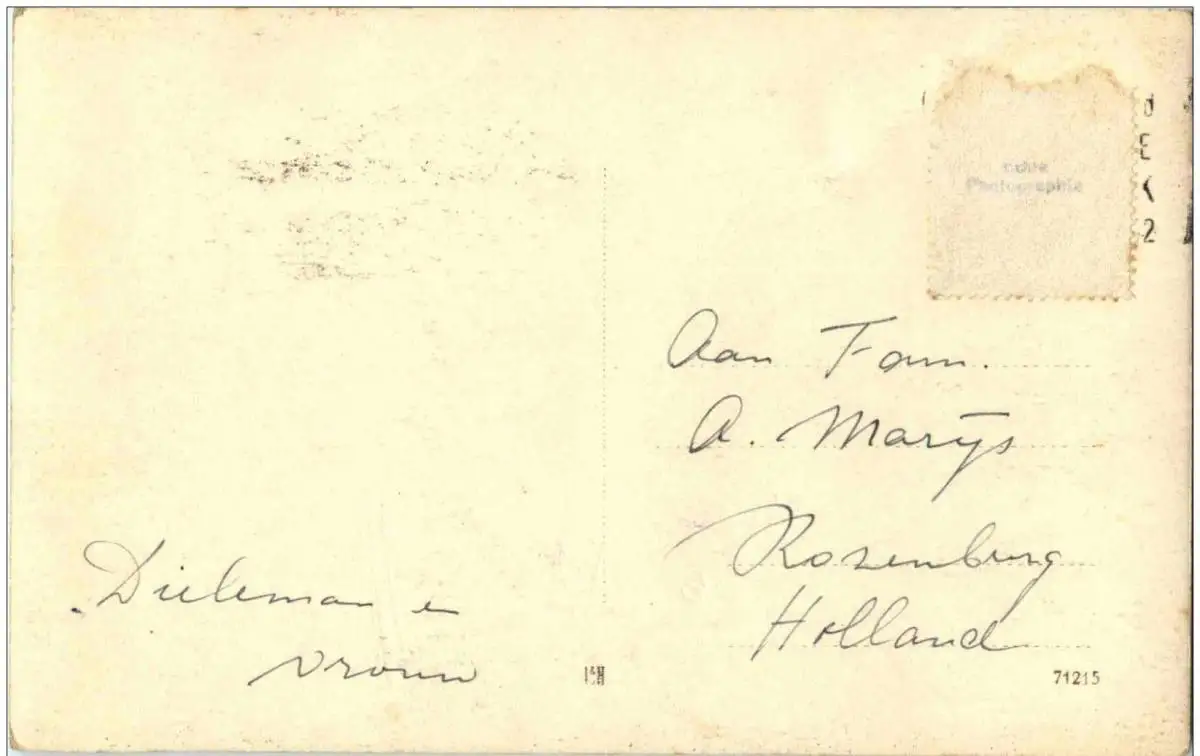 echte
Photographie
Aan Fam.
A. Marijs
Rozenburg
Holland
Dieleman en
vrouw
71215